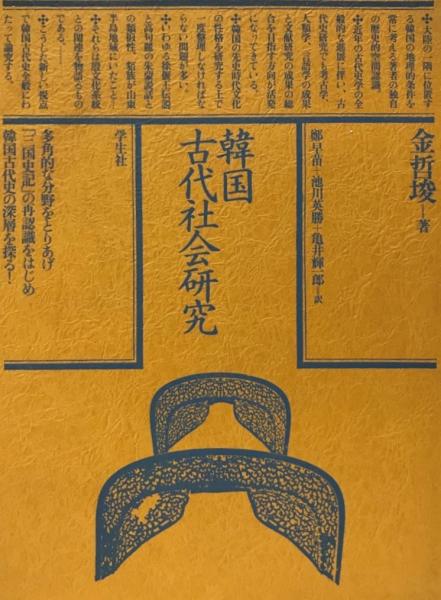 ✢大陸の一隅に位置す
る韓国の地理的条件を
常に考える著者の独自
の歴史的空間認識。
✢近年の古代史学の全
般的な進展に伴い、古
代史研究でも考古学、
人類学、言語学の成果
と文献研究の成果の総
合を目指す方向が活発
になってきている。
✢韓国の先史時代文化
の性格を研究する上で
一度整理しなければな
らない問題が多い。
✢いわゆる徐偃王伝説
と高句麗の朱蒙説話と
の類似性、貊族が山東
半島地域にいたこと…
✢それらは殷文化系統
との関連を物語るもの
である……
✢こうした新しい視点
で韓国古代史全般にわ
たって論究する。
金哲埈―著
鄭早苗＋池川英勝＋亀井輝一郎―訳
韓国
古代社会研究
学生社
多角的な分野をとりあげ
『三国史記』の再認識をはじめ
韓国古代史の深層を探る！